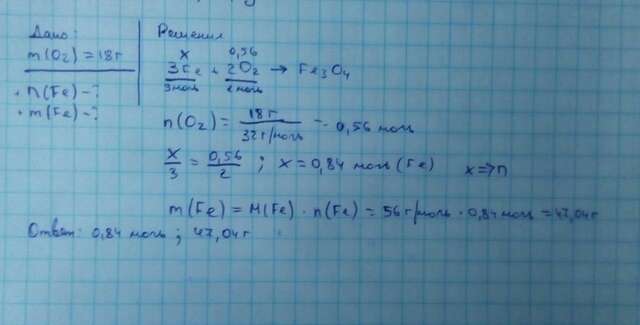 Дано:
m(O₂) = 18г
n(Fe) - ?
m(Fe) - ?
Решения
x 0,56
3Fe + 2O₂ → Fe₃O₄
3моль 2моль
n(O₂) = 18г / 32г/моль = 0,56 моль
x/3 = 0,56/2 ; x = 0,84 моль (Fe) x => n
m(Fe) = M(Fe) · n(Fe) = 56г/моль · 0,84 моль = 47,04г
Ответ: 0,84 моль ; 47,04г